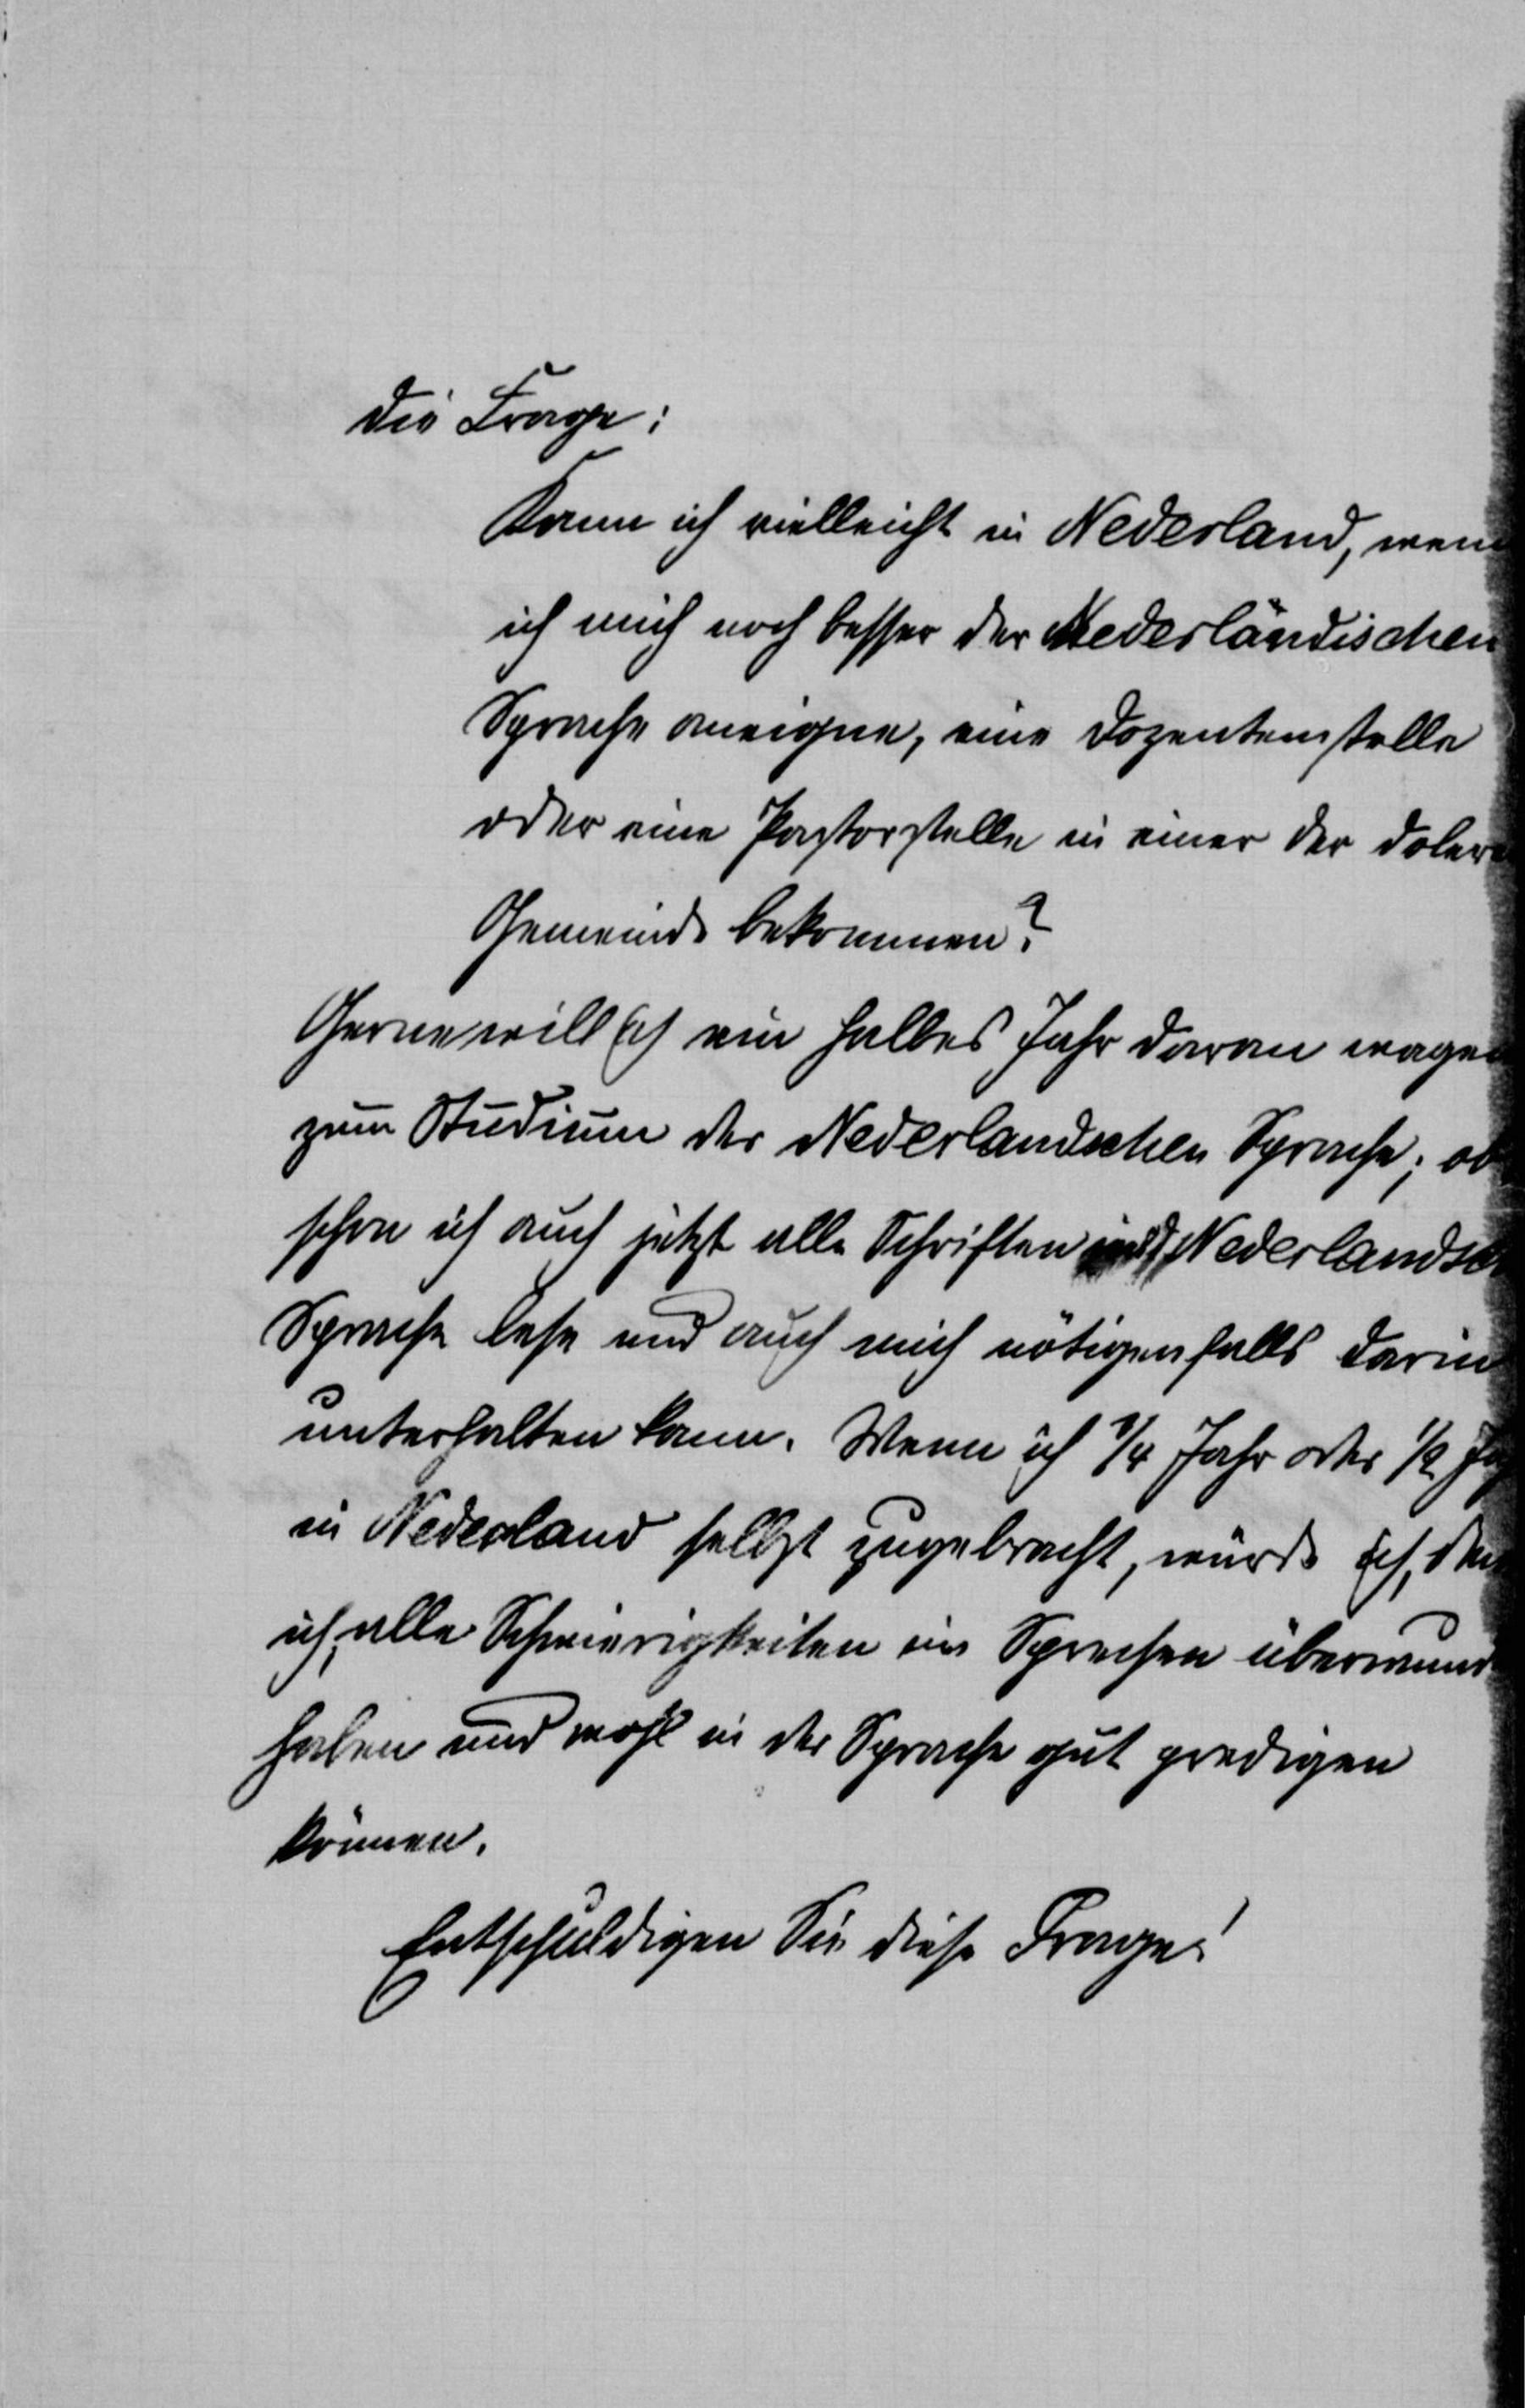 die Frage:
Kann ich vielleicht in Nederland, wenn
ich mich noch besser der Nederländischen
Sprache aneigne, eine Dozentenstelle
oder eine Pastorstelle in einer der doler
Gemeinde bekommen?
Gerne will ich ein halbes Jahr daran wagen
zum Studium der Nederlandschen Sprache; ob
schon ich auch jetzt alle Schriften in d Nederlandsch
Sprache lese und auch mich nötigenfalls darin
unterhalten kann. Wenn ich 1/4 Jahr oder 1/2 Jah
in Nederland selbst zugebracht, würde ich, den
ich, alle Schwierigkeiten im Sprechen überwund
haben und wohl in der Sprache gut predigen
können.
Entschuldigen Sie diese Frage!